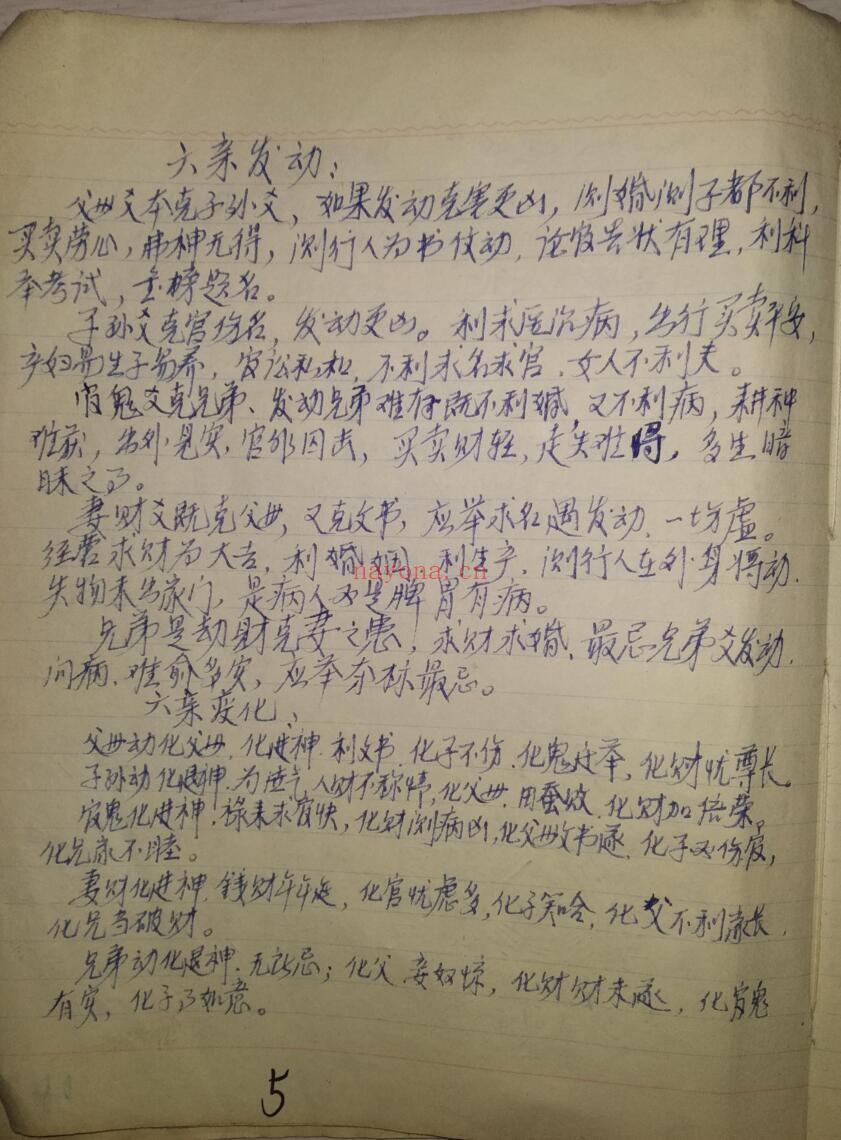 六亲发动：
父母爻本克子孙爻，如果发动克害更凶，测婚测子都不利，
买卖劳心，费神无得，测行人为书信动，论官告状有理，利科
举考试，金榜题名。
子孙爻克官伤名，发动更凶。利求医治病，出行买卖平安，
产妇易生子易养，官讼私和，不利求名求官，女人不利夫。
官鬼爻克兄弟、发动兄弟难有既不利婚，又不利病，耕种
难获，出外见灾，官非囚击，买卖财轻，走失难得，多生暗
昧之事。
妻财爻既克父母，又克文书，应举求名遇发动，一切虚。
经营求财为大吉，利婚姻，利生产，测行人在外身将动，
失物未出家门，是病人必是脾胃有病。
nayona.cn
兄弟是劫财克妻之患，求财求婚、最忌兄弟爻发动，
问病、难愈多灾，应举夺标最忌。
六亲变化：
父母动化父母，化进神，利文书，化子不伤，化鬼迁举，化财忧尊长。
子孙动化退神，为泄气，人财不称情，化父母，田蚕败，化财加倍荣，
官鬼化进神，禄来求官快，化财测病凶，化父母文书逐，化子必伤官，
化兄家不睦。
妻财化进神，钱财年年进，化官忧虑多，化子笑哈哈，化父不利家长，
化兄当破财。
兄弟动化退神，无所忌；化父 妾奴惊，化财财来逐，化官鬼
有灾，化子事如意。
5